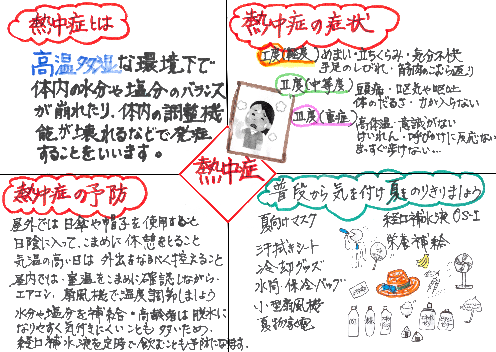 熱中症とは
高温多湿な環境下で
体内の水分や塩分のバランス
が崩れたり、体内の調整機
能が壊れるなどで発症
することをいいます。
熱中症の症状
I度(軽度)めまい・立ちくらみ・気分不快
手足のしびれ・筋肉のこむら返り
II度(中等度)頭痛・吐き気や嘔吐
体のだるさ・力が入らない
III度(重症)高体温・意識がない
けいれん・呼びかけに反応ない
まっすぐ歩けない…
熱中症
熱中症の予防
屋外では日傘や帽子を使用すること
日陰に入って、こまめに休憩をとること
気温の高い日は外出をなるべく控えること
室内では・室温をこまめに確認しながら・
エアコン、扇風機で温度調節しましょう
水分や塩分を補給・高齢者は脱水に
なりやすく気付きにくいことも多いため、
経口補水液を定時で飲むことも予防になります。
普段から気を付け夏をのりきりましょう
夏向けマスク
汗拭きシート
冷却グッズ
水筒・保冷バッグ
小型扇風機
経口補水液OS-1
栄養補給